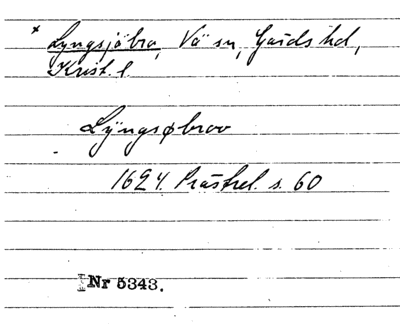 * Lyngsjöbro, Vä sn, Gärds hd,
Krist. l.
Lÿngsøbroo
1624. Prästrel. s. 60
Nr 5343.